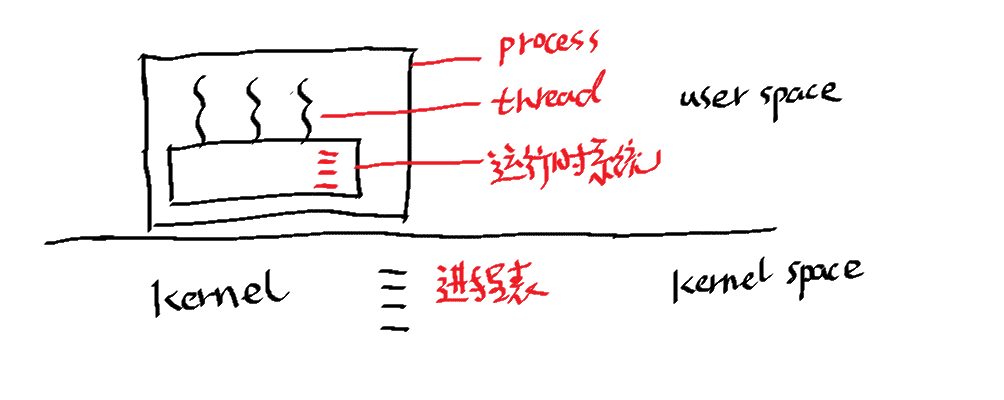 process
thread
user space
运行时系统
kernel
进程表
kernel space